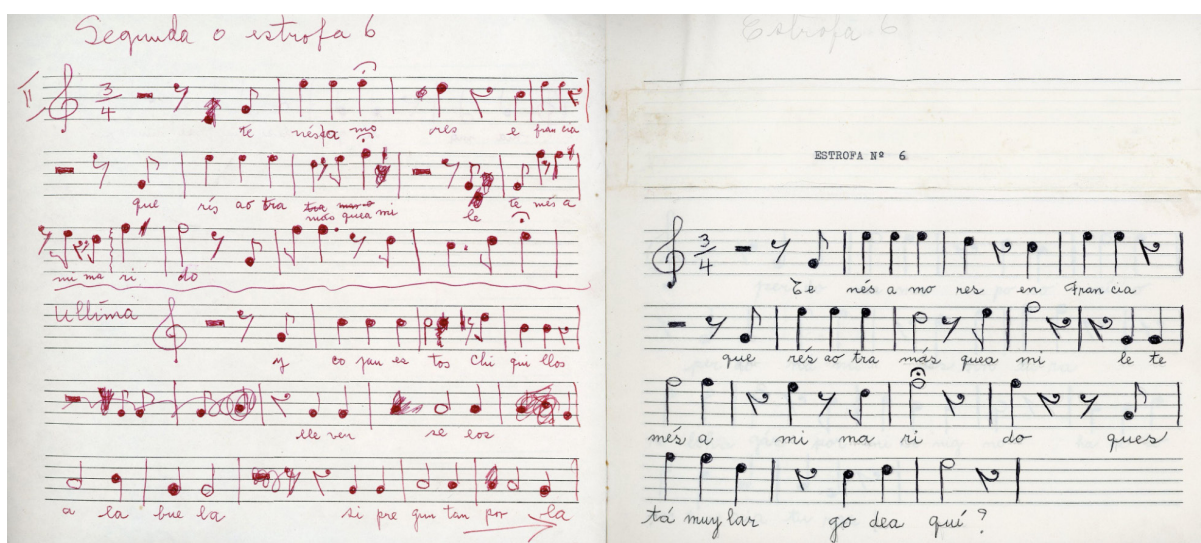 Segunda o estrofa 6
II
3
4
te nésfa mo res e francia
que rés ao tra
más quea mi le te més a
mi ma ri do
Ultima
y co jan es tos chi qui llos
lle ven se los
a la bue la si pre gun tan por la
Estrofa 6
ESTROFA Nº 6
3
4
Te nés a mo res en Fran cia
que rés ao tra más quea mi le te
més a mi ma ri do ques
tá muy lar go dea quí?